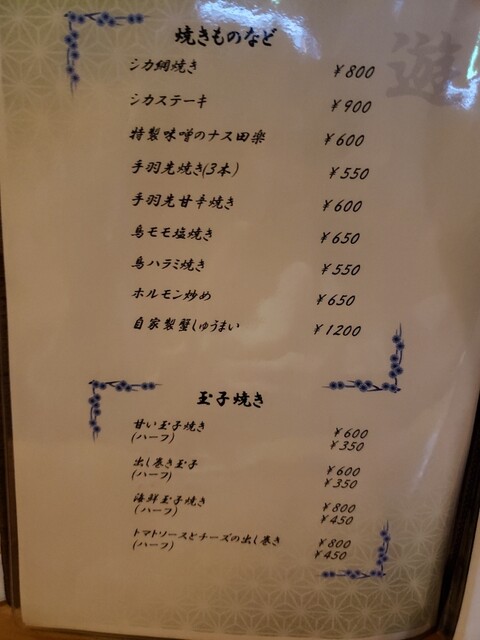 遊
焼きものなど
シカ網焼き ¥800
シカステーキ ¥900
特製味噌のナス田楽 ¥600
手羽先焼き(3本) ¥550
手羽先甘辛焼き ¥600
鳥モモ塩焼き ¥650
鳥ハラミ焼き ¥550
ホルモン炒め ¥650
自家製蟹しゅうまい ¥1200
玉子焼き
甘い玉子焼き ¥600
(ハーフ) ¥350
出し巻き玉子 ¥600
(ハーフ) ¥350
海鮮玉子焼き ¥800
(ハーフ) ¥450
トマトソースとチーズの出し巻き ¥800
(ハーフ) ¥450